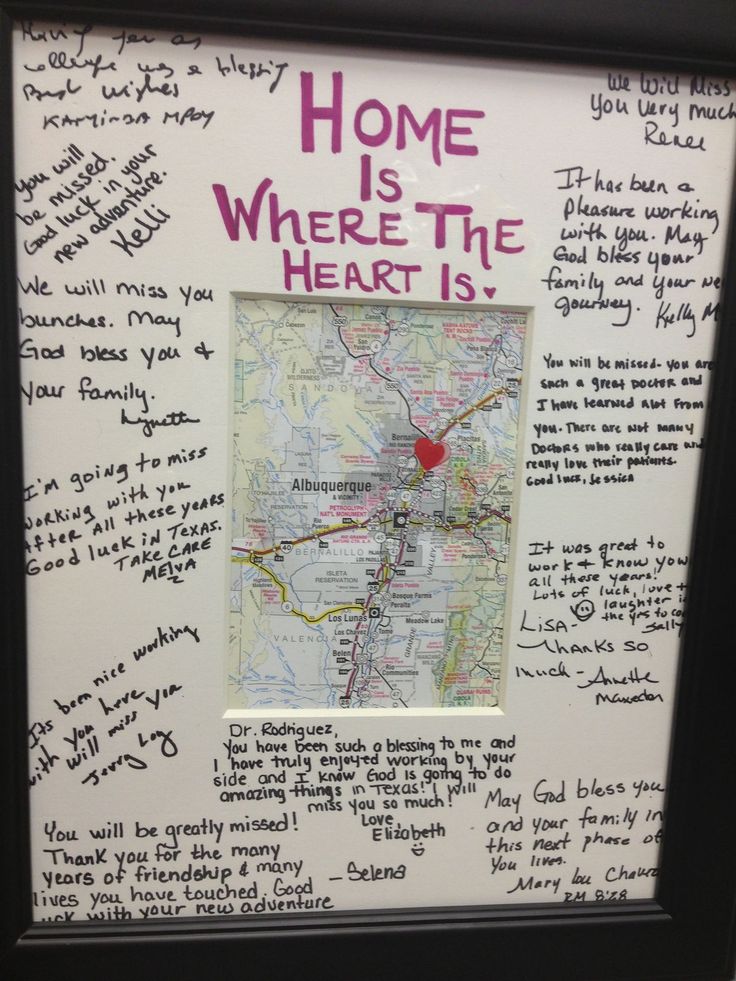 HOME
IS
WHERE THE
HEART IS
Having you as
college was a blessing
Best wishes
KAMINDA MPOY
You will
be missed.
Good luck in your
new adventure.
Kelli
We will miss you
bunches. May
God bless you &
your family.
Lynette
I'm going to miss
working with you
after all these years
Good luck in Texas.
TAKE CARE
MELVA
Its been nice working
with you here
will miss you
Jerry Loy
You will be greatly missed!
Thank you for the many
years of friendship & many
lives you have touched. Good
luck with your new adventure
- Selena
We Will Miss
You very much
Renee
It has been a
pleasure working
with you. May
God bless your
family and your
journey. Kelly M
You will be missed- you are
such a great Doctor and
I have learned alot from
you. There are not many
Doctors who really care and
really love their patients.
Good luck, Jessica
It was great to
work & know you
all these years!
Lots of luck, love +
laughter in
the yrs to
Sally
LISA-
Thanks so
much - Annette
Dr. Rodriguez,
You have been such a blessing to me and
I have truly enjoyed working by your
side and I know God is going to do
amazing things in Texas! I will
miss you so much!
Love,
Elizabeth
May God bless you
and your family in
this next phase of
you lives.
Mary Lou
RM 8:28
Albuquerque
& VICINITY
PETROGLYPH
NAT'L MONUMENT
SANDOVAL
BERNALILLO
ISLETA
RESERVATION
Rio
Puerco
Bosque Farms
Peralta
Los Lunas
Meadow Lake
VALENCIA
Los Chavez
Tome
Belen
Rio
Communities
Placitas
550
40
25
6